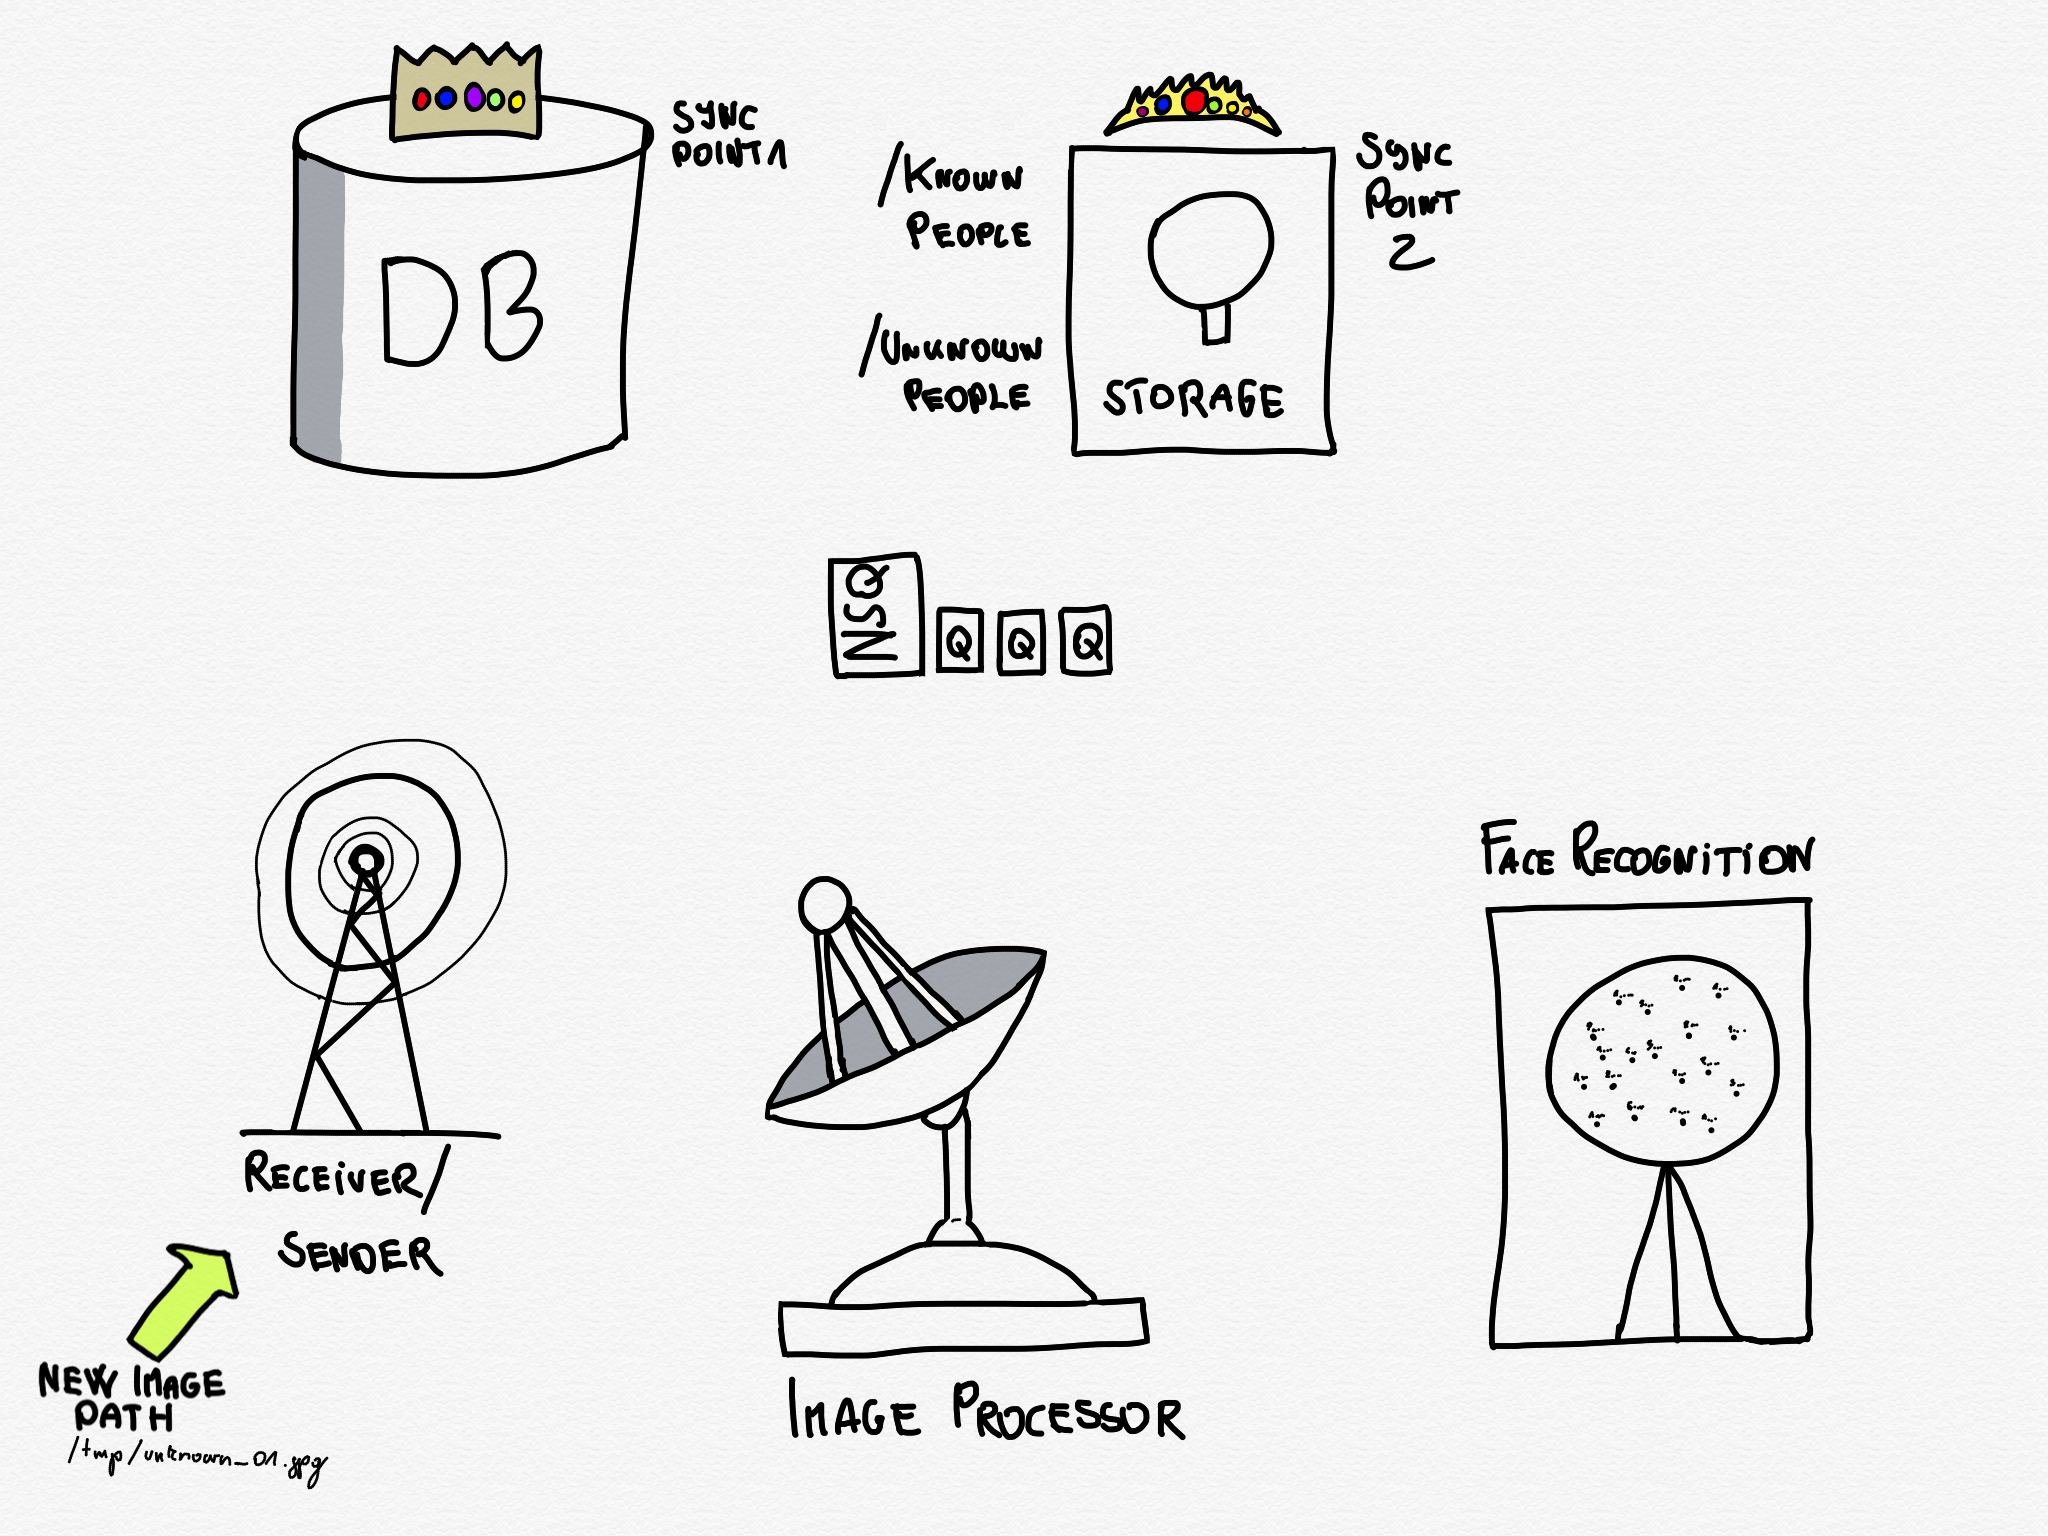 SYNC
POINT 1
DB
/KNOWN
PEOPLE
/UNKNOWN
PEOPLE
STORAGE
SYNC
POINT
2
NSQ
Q Q Q
RECEIVER/
SENDER
NEW IMAGE
PATH
/tmp/unknown_01.jpg
IMAGE PROCESSOR
FACE RECOGNITION